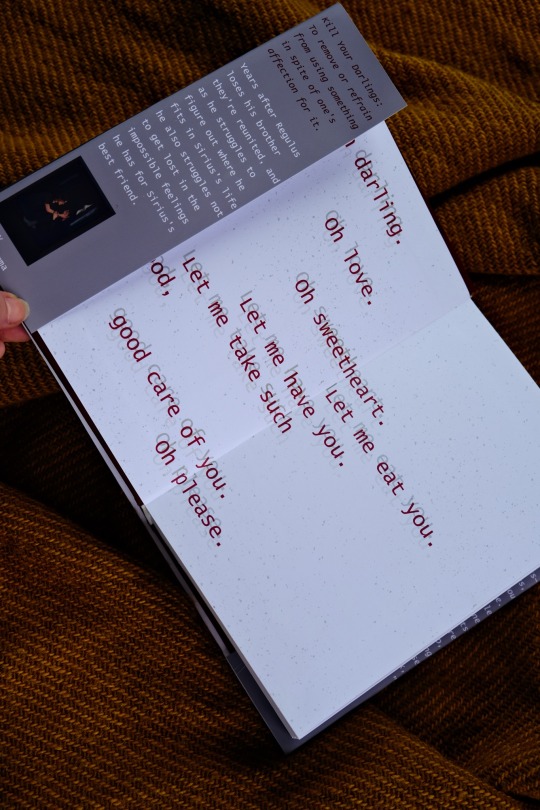 Kill Your Darlings:
To remove or refrain
from using something
in spite of one's
affection for it.
Years after Regulus
loses his brother
they're reunited, and
as he struggles to
figure out where he
fits in Sirius's life
he also struggles not
to get lost in the
impossible feelings
he has for Sirius's
best friend.
darling.
Oh love.
Oh sweetheart.
Let me eat you.
Let me have you.
Let me take such
good care of you.
Oh please.